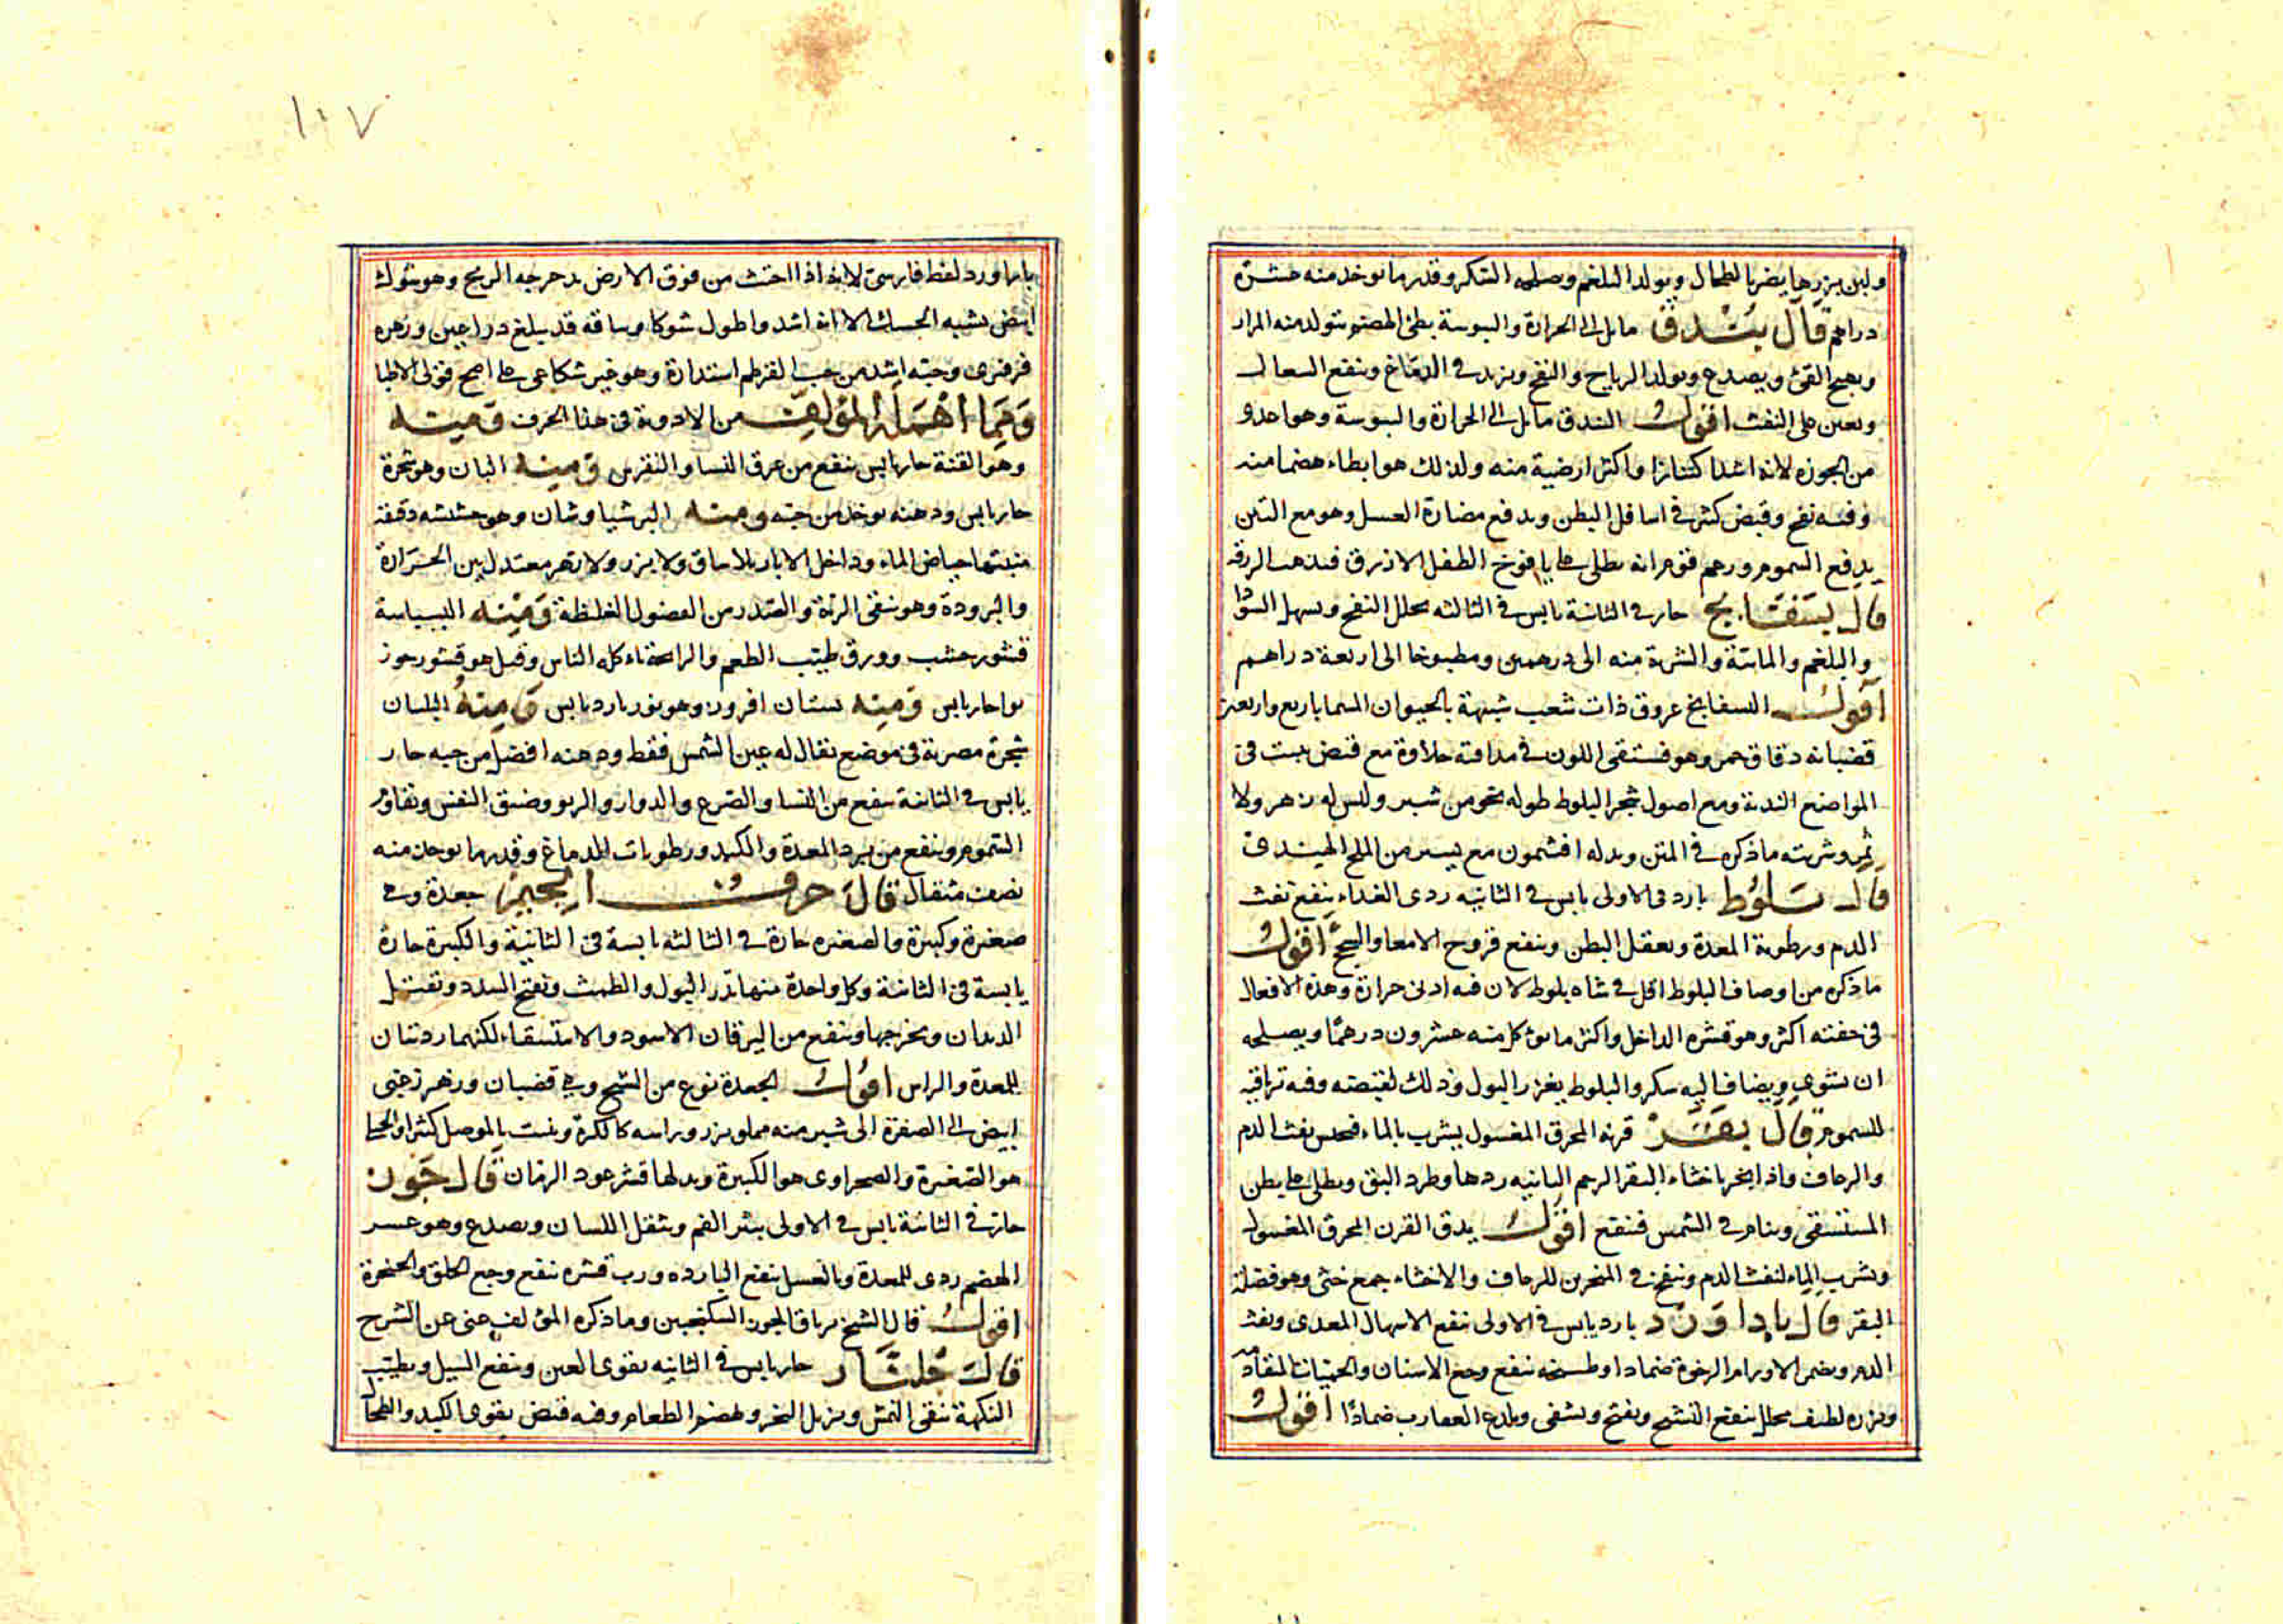 ولبن بزرها يضر بالطحال ويولد البلغم ويصلحه السكر وقدر ما يوخذ منه عشرة
دراهم قال بندق مايل الى الحرارة واليبوسة بطئ الهضم يتولد منه المرار
ويهيج القئ ويصدع ويولد الرياح والنفخ ويزيد في الدماغ وينفع السعال
ويعين على النفث اقول البندق مايل الى الحرارة واليبوسة وهو احد
من الجوزه لانه اشد اكتنازا واكثر ارضية منه ولذلك هو ابطاء هضما منه
وفيه نفخ وقبض كثير في اسافل البطن ويدفع مضارة العسل وهو مع التين
يدفع السموم وزعم قوم انه يطلى على يافوخ الطفل الازرق فيذهب الزرقه
قال بسفايج حار في الثانية يابس في الثالثه يحلل النفخ ويسهل السودا
والبلغم والمائية والشربة منه الى درهمين ومطبوخا الى اربعة دراهم
اقول البسفايج عروق ذات شعب شبيهة بالحيوان المسما باربع واربعين
قضبانه دقاق حمر وهو فستقى اللون في مذاقته حلاوة مع قبض ينبت في
المواضع الندية ومع اصول شجر البلوط طوله نحو من شبر وليس له زهر ولا
ثمر وشربته ما ذكره في المتن وبدله افتيمون مع يسير من الملح الهندى
قال بلوط بارد في الاولى يابس في الثانيه ردى الغداء ينفع نفث
الدم ورطوبة المعدة ويعقل البطن وينفع قروح الامعا والسحج اقول
ما ذكره من اوصاف البلوط اقل في شاه بلوط لان فيه ادنى حرارة وهذه الافعال
في جفته اكثر وهو قشره الداخل واكثر ما يوكل منه عشرون درهما ويصلحه
ان يشوى ويضاف اليه سكر والبلوط يغزر البول وذلك لقبضه وفيه ترياقيه
للسموم قال بقر قرنه المحرق المغسول يشرب بالماء فيحبس نفث الدم
والرعاف واذا بخر باخثاء البقر الرحم الناتيه ردها وطرد البق ويطلى على بطن
المستسقى وينام في الشمس فينفع اقول يدق القرن المحرق المغسول
ويشرب بالماء لنفث الدم وينفخ في المنخرين للرعاف والاخثاء جمع خثى وهو فضلة
البقر قال باداورد بارد يابس في الاولى ينفع الاسهال المعدى ونفث
الدم ويضمر الاورام الرخوة ضمادا وطبيخه ينفع وجع الاسنان والحميات المتقادمه
وبزره لطيف محلل ينفع التشنج ويفتح ويشفى ويلدغ العقارب ضمادا اقول
١٠٧
باداورد لفظ فارسى لانه اذا اجتث من فوق الارض يدحرجه الريح وهو شوك
ابيض يشبه الحسك الا انه اشد واطول شوكا وساقه قد يبلغ ذراعين وزهره
فرفيرى وحبته اشد من حب القرطم استدارة وهو غير شكاعى على اصح قولى الاطبا
ومما اهمله المؤلف من الادوية في هذا الحرف ومنه
وهو القنة حار يابس ينفع من عرق النسا والنقرس ومنه البان وهو شجرة
حار يابس ودهنه يوخذ من حبه ومنه البرشياوشان وهو حشيشه دقيقه
منبتها حياض الماء وداخل الابار بلا ساق ولا بزر ولا زهر معتدل بين الحرارة
والبرودة وهو ينقى الرئة والصدر من الفضول الغليظة ومنه البسباسة
قشور خشب وورق طيب الطعم والرائحة تاكله الناس وقيل هو قشور جوز
بوا حار يابس ومنه بستان افروز وهو نور بارد يابس ومنه البلسان
شجرة مصرية في موضع يقال له عين الشمس فقط ودهنه افضل من حبه حار
يابس في الثانية ينفع من النسا والصرع والدوار والربو وضيق النفس ويقاوم
السموم وينفع من برد المعدة والكبد ورطوبات الدماغ وقدر ما يوخذ منه
نصف مثقال قال حرف الجيم جعدة وهي
صغيرة وكبيرة والصغيره حارة في الثالثه يابسة في الثانية والكبيرة حارة
يابسة في الثانية وكل واحدة منهما تدر البول والطمث وتفتح السدد وتقتل
الديدان وتخرجها وينفع من اليرقان الاسود والاستسقاء لكنهما رديتان
للمعدة والراس اقول الجعدة نوع من الشيح وهي قضبان وزهر زغبى
ابيض الى الصفرة الى شبر منه مملو بزر وراسه كالكرة وينبت بالموصل كثيرا والجبلى
هو الصغيرة والصحراوى هو الكبيرة وبدلها قشر عود الرمان قال جوز
حار في الثانية يابس في الاولى يبثر الفم ويثقل اللسان ويصدع وهو عسر
الهضم ردى للمعدة وبالعسل ينفع البارده ورب قشره ينفع وجع الحلق والحنجرة
اقول قال الشيخ ترياق الجوز السكنجبين وما ذكره المؤلف غنى عن الشرح
قال جلنار حار يابس في الثانيه يقوى العين وينفع السبل ويطيب
النكهة ينقى النمش ويزيل البخر ويهضم الطعام وفيه قبض يقوى الكبد والطحال